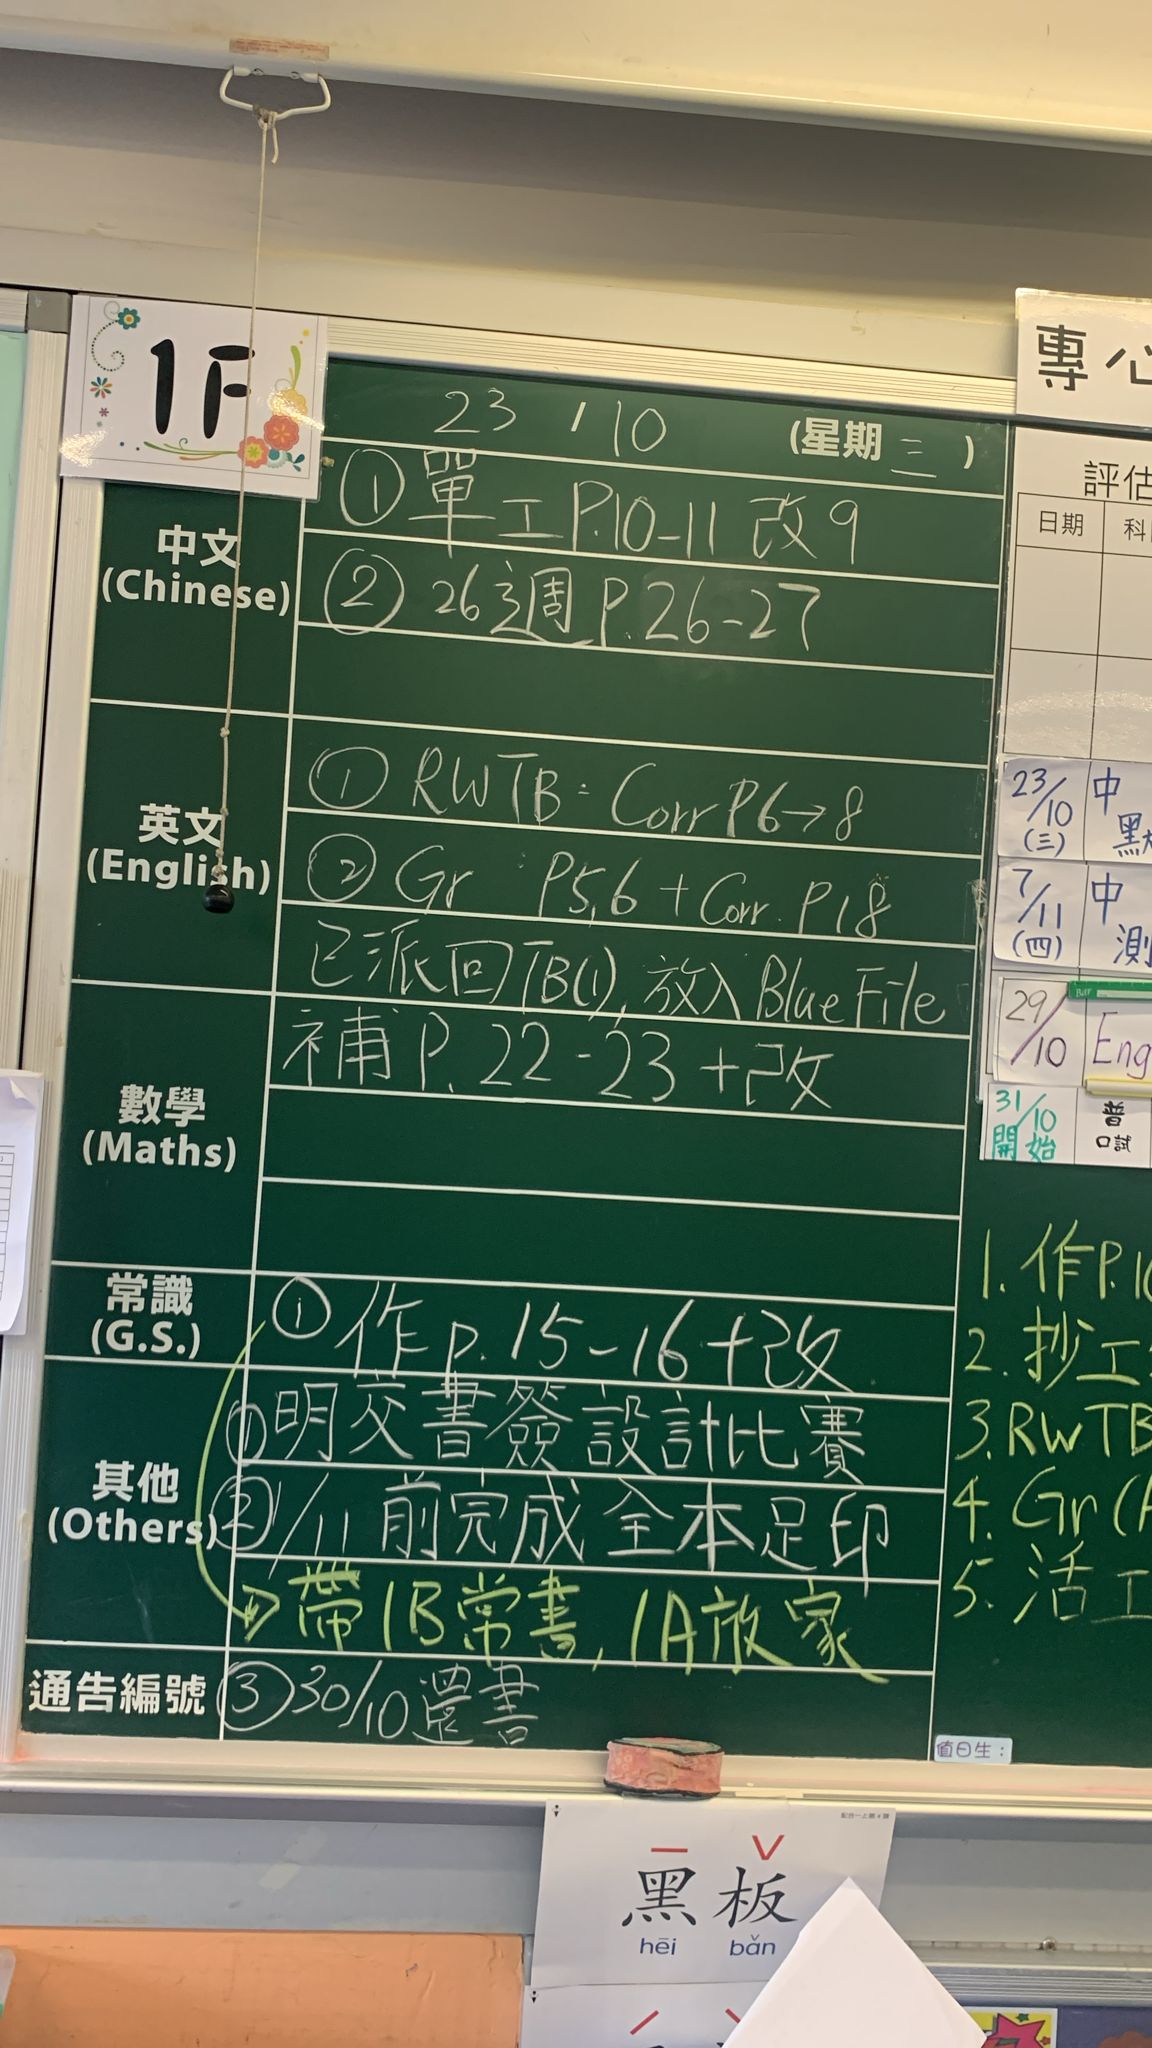 1F
23 / 10 (星期 三 )
中文
(Chinese)
① 單工 P.10-11 改9
② 26週 P.26-27
英文
(English)
① RWTB: Corr P6→8
② Gr : P5,6 + Corr. P18
已派回TB(1), 放入 Blue File
數學
(Maths)
補 P. 22-23 + 改
常識
(G.S.)
① 作 p. 15-16 + 改
其他
(Others)
① 明交書簽設計比賽
② 1/11 前完成全本足印
→ 帶1B常書, 1A放家
通告編號
③ 30/10 還書
專心
評估
日期 科
23/10 (三) 中
默
7/11 (四) 中
測
29/10 Eng
31/10 開始 普
口試
1. 作P.
2. 抄工
3. RWTB
4. Gr (
5. 活工
值日生:
黑板
hēi bǎn